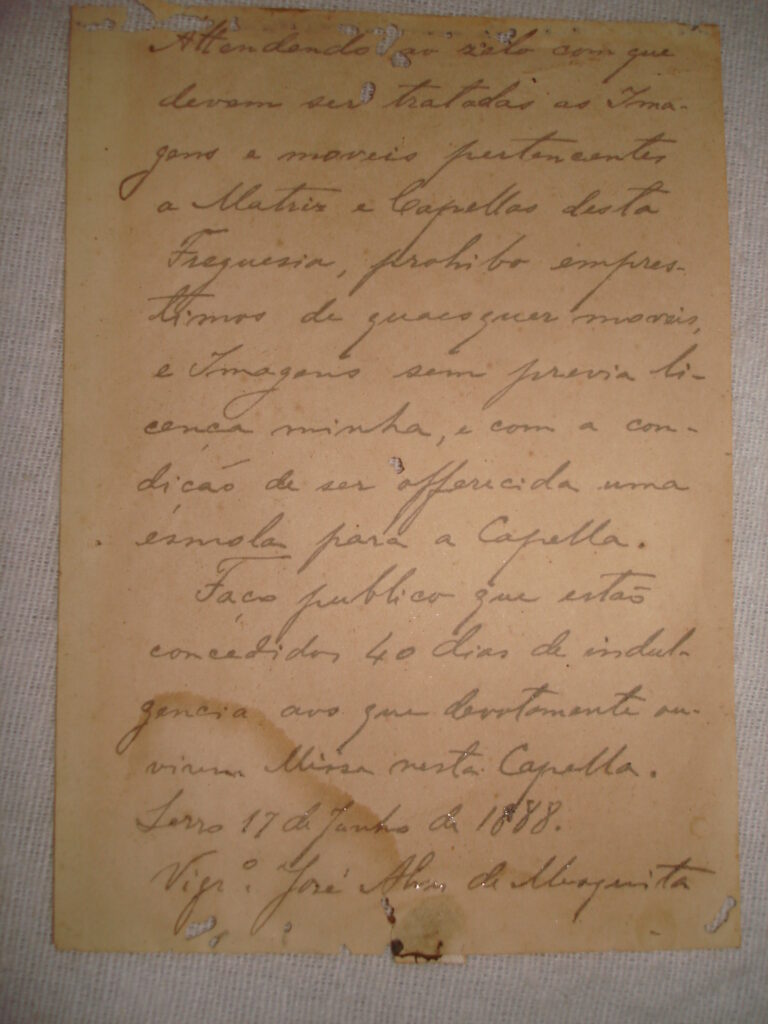 Attendendo ao zelo com que
devem ser tratadas as Ima-
gens e moveis pertencentes
a Matriz e Capellas desta
Freguesia, prohibo empres-
timos de quaesquer moveis,
e Imagens sem previa li-
cença minha, e com a con-
dicão de ser offerecida uma
esmola para a Capella.
Faço publico que estão
concedidos 40 dias de indul-
gencia aos que devotamente ou-
virem Missa nesta Capella.
Serro 17 de Junho de 1888.
Vigr.º José Alves de Mesquita